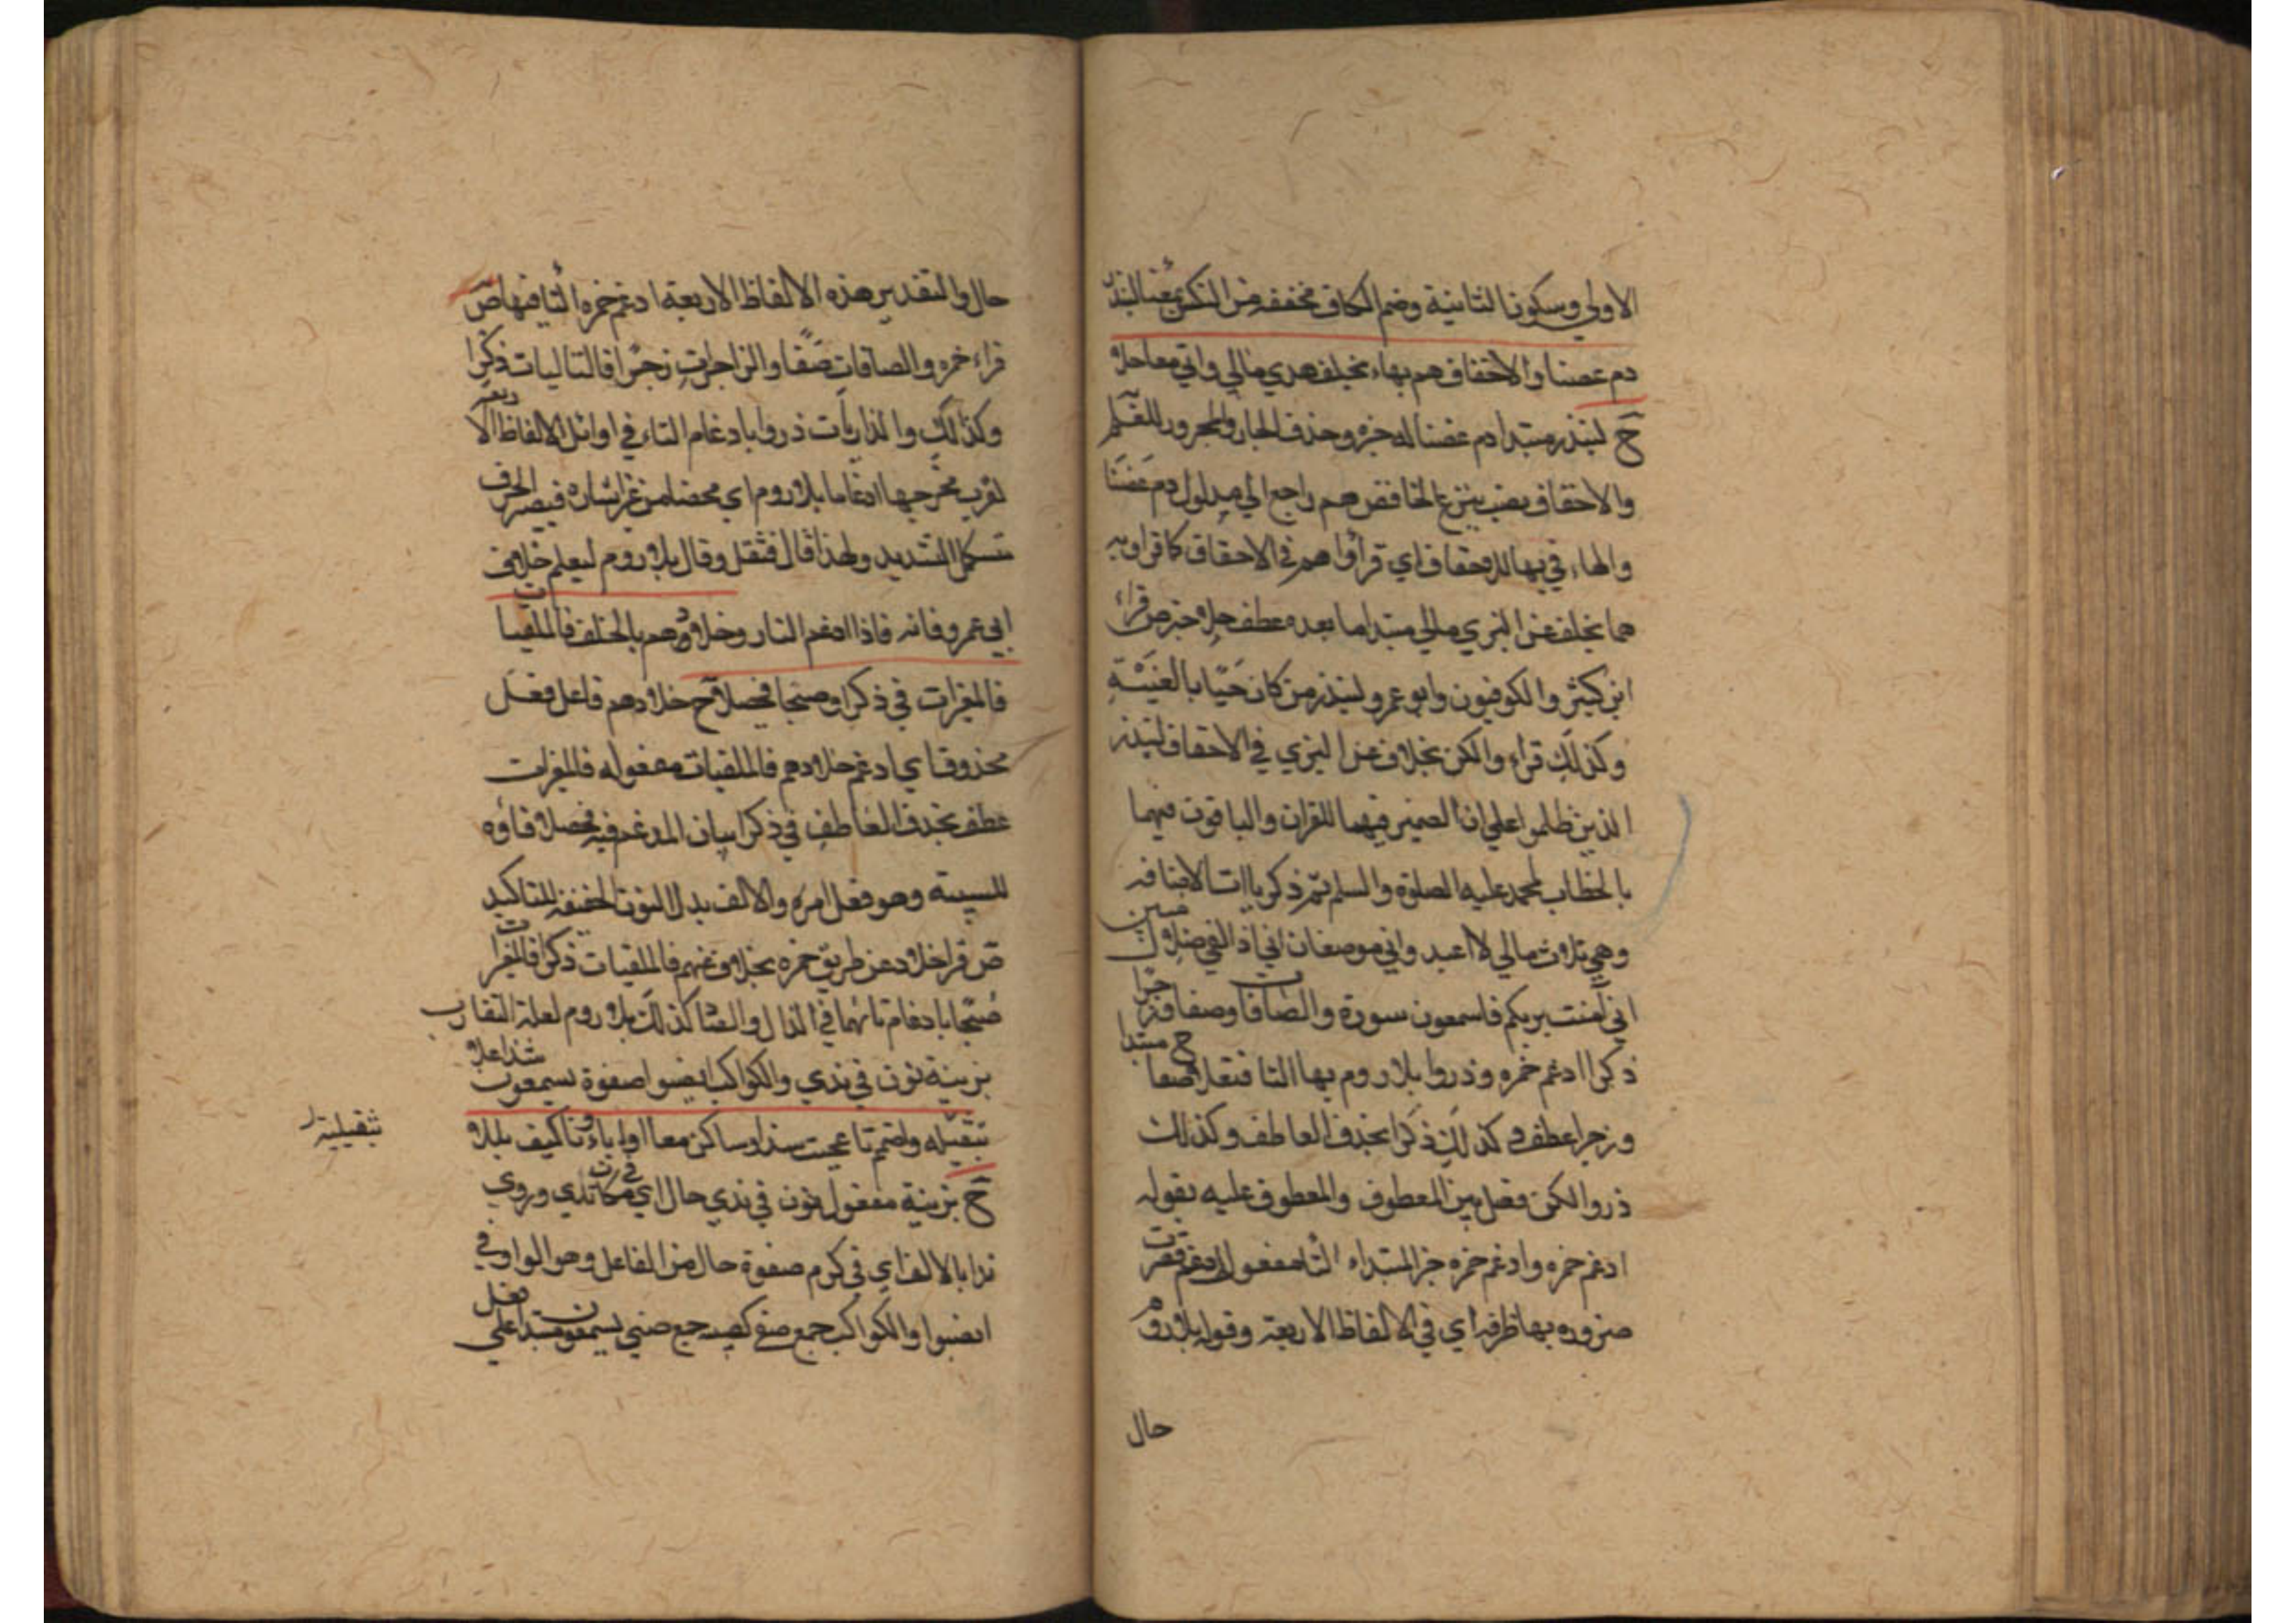 الاولي وسكون الثانية وضم الكاف مخففه من النكس بمعنا لينذر
دم غصنا والاحقاف هم بهاء بخلف هدي مالي واني معا حلا
ح لينذر مبتدا دم غصنا له خبره وحذف الجار والمجرور للعلم
والاحقاف نصب بنزع الخافض هم راجع الي مدلول دم غصنا
والهاء في بها للاحقاف اي قرأوا هم في الاحقاف كما قراوبه
هما بخلف عن البزي مالي مبتدا ما بعده عطف حلا خبر ص قراء
ابن كثير والكوفيون وابو عمرو لينذر من كان حيا بالغيبة
وكذلك قراء والكن بخلاف عن البزي في الاحقاف لينذر
الذين ظلموا علي ان الضمير فيهما للقران والباقون فيهما
بالخطاب لمحمد عليه الصلوة والسلم ثم ذكر ياات الاضافه
وهي ثلاث مالي لا اعبد واني موضعان اني اذا لفي ضلال مبين
اني آمنت بربكم فاسمعون سورة والصافات وصفا وزجرا
ذكرا ادغم حمزه وذروا بلا روم بها التا فثقلا ح صفا مبتدا
وزجرا عطف و كذلك ذكرا بحذف العاطف وكذلك
ذروا لكن فصل بين المعطوف والمعطوف عليه بقوله
ادغم حمزه وادغم حمزه خبر المبتداء التا مفعول ادغم قصرت
ضروره بها ظرفه اي في الالفاظ الاربعة وقوله بلا روم
حال
حال والتقدير هذه الالفاظ الاربعة ادغم حمزه التا فيها ص
قراء حمزه والصافات صفا والزاجرات زجرا فالتاليات ذكرا
وكذلك والذاريات ذروا بادغام التاء في اوائل الالفاظ الاربعة
لقرب مخرجها ادغاما بلا روم اي محضا من غير اشاره فيصير الحرف
تستكمل التشديد ولهذا قال فثقل وقال بلا روم ليعلم خلاف
ابي عمرو فانه فاذا ادغم التا رو وخلادهم بالخلف فالملقيات
فالمغيرات في ذكرا وصبحا فحصلا ح خلادهم فاعل فعل
محذوف اي ادغم خلادهم فالملقيات مفعوله فالمغيرات
عطف بحذف العاطف في ذكرا بيان المدغم فيه فحصلا فاؤه
للسببية وهو فعل امره والالف بدل النون الخفيفه للتاكيد
ص قرا خلاد عن طريق حمزه بخلاف عنهم فالملقيات ذكرا فالمغيرات
صبحا بادغام تائهما في الذال والصاد كذلك بلا روم لعلة التقارب
بزينة نون في ندي والكواكب انصبوا صفوة يسمعون شذا علا
بثقيله واضمم تا عجبت شذا وساكن معا او اباؤنا كيف بللا
ثقيلية
ح بزينة مفعول نون في ندي حال اي في مكان ندي وروي
ندا بالالف اي في كرم صفوة حال من الفاعل وهو الواو في
انصبوا والكواكب جمع صفي كصبيه جمع صبي يسمعون مبتدا علي فعل